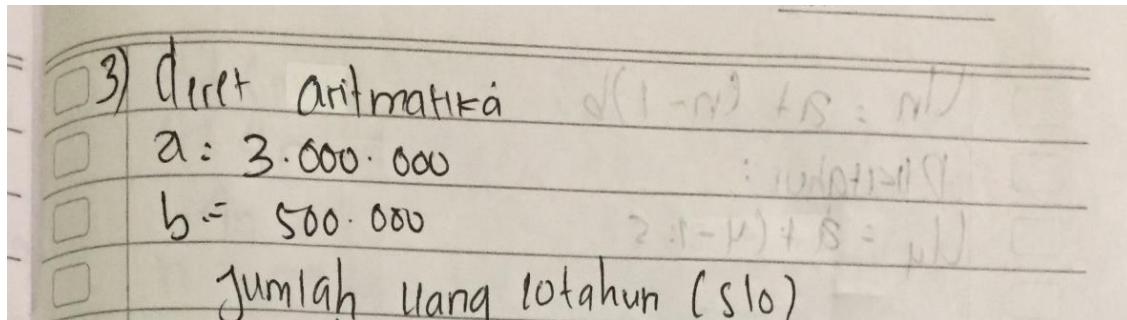 3) deret aritmatika
a: 3.000.000
b.= 500.000
Jumlah uang 10tahun (s10)